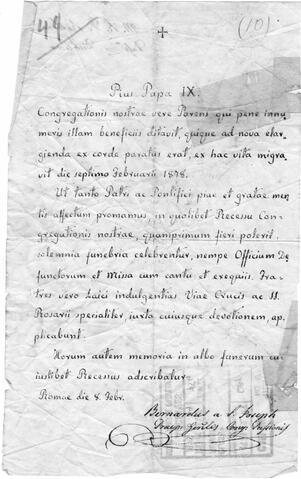 49
(10)
Pius Papa IX.
Congregationis nostrae vere Parens qui pene innu
meris illam beneficiis ditavit, quique ad nova elar
gienda ex corde paratus erat, ex hac vita migra
vit die septimo Februarii 1878.
Ut tanto Patri ac Pontifici piae et gratae men
tis affectum promamus, in quolibet Recessu Con
gregationis nostrae, quamprimum fieri poterit
solemnia funebria celebrentur, nempe Officium De
functorum et Missa cum cantu et exequiis. Fra
tres vero Laici indulgentias Viae Crucis ac SS.
Rosarii specialiter juxta cuiusque devotionem, ap
plicabunt.
Horum autem memoria in albo funerum cu
iustibet Recessus adscribatur
Romae die 8. Febr.
Bernardus a S. Joseph
Praep. Gnlis. Cong. Passionis